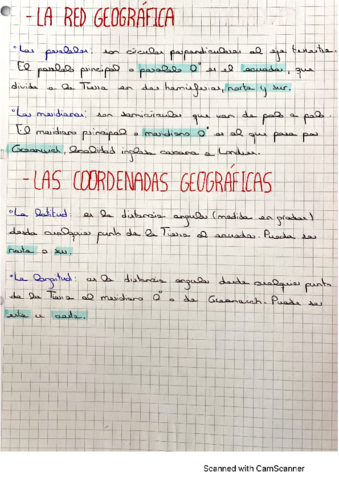 - LA RED GEOGRÁFICA
• Los paralelos: son círculos perpendiculares al eje terrestre.
El paralelo principal o paralelo 0° es el ecuador, que
divide a la Tierra en dos hemisferios, norte y sur.
• Los meridianos: son semicírculos que van de polo a polo.
El meridiano principal o meridiano 0° es el que pasa por
Greenwich, localidad inglesa cercana a Londres.
- LAS COORDENADAS GEOGRÁFICAS
• La latitud: es la distancia angular (medida en grados)
desde cualquier punto de la Tierra al ecuador. Puede ser
norte o sur.
• La longitud: es la distancia angular desde cualquier punto
de la Tierra al meridiano 0° o de Greenwich. Puede ser
este u oeste.
Scanned with CamScanner